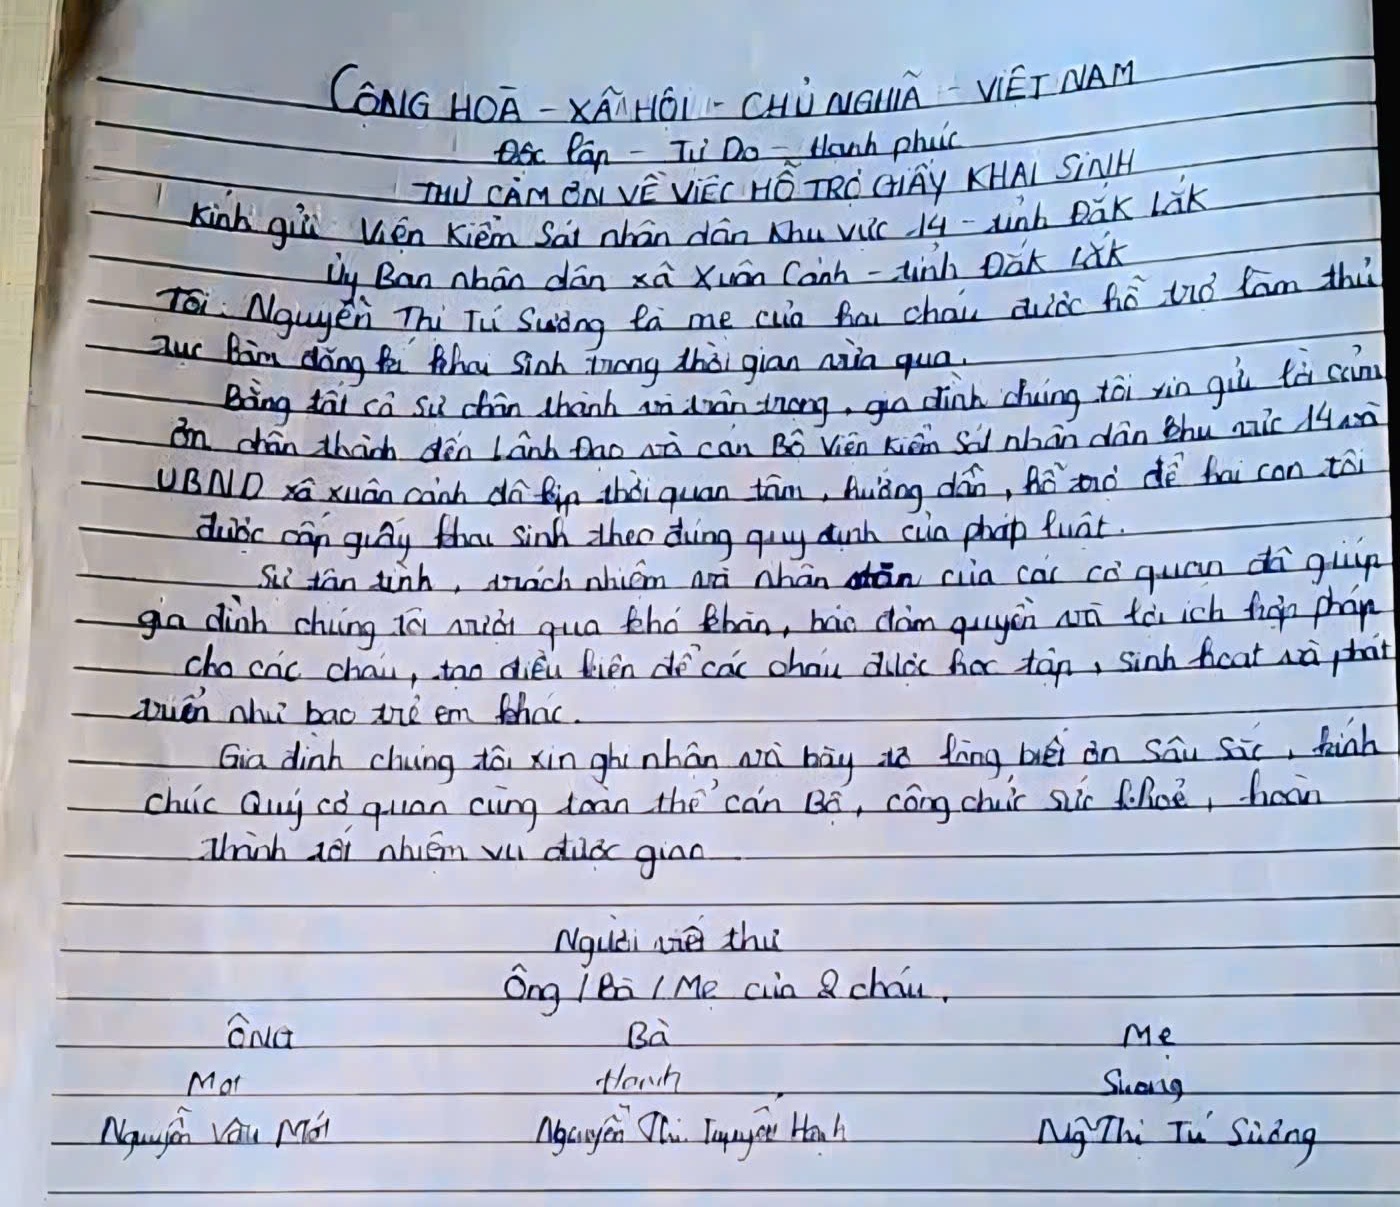 CỘNG HOÀ - XÃ HỘI - CHỦ NGHĨA - VIỆT NAM
Độc lập - Tự Do - Hạnh phúc
THƯ CẢM ƠN VỀ VIỆC HỖ TRỢ GIẤY KHAI SINH
Kính gửi Viện Kiểm Sát nhân dân Khu vực 14 - tỉnh Đắk Lắk
Ủy Ban nhân dân xã Xuân Cảnh - tỉnh Đắk Lắk
Tôi. Nguyễn Thị Tú Sương là mẹ của hai cháu được hỗ trợ làm thủ
tục làm đăng kí khai sinh trong thời gian vừa qua.
Bằng tất cả sự chân thành và trân trọng, gia đình chúng tôi xin gửi lời cảm
ơn chân thành đến Lãnh Đạo và cán Bộ Viện Kiểm Sát nhân dân khu vực 14 và
UBND xã xuân cảnh đã kịp thời quan tâm, hướng dẫn, hỗ trợ để hai con tôi
được cấp giấy khai sinh theo đúng quy định của pháp luật.
Sự tận tình, trách nhiệm và nhân văn của các cơ quan đã giúp
gia đình chúng tôi vượt qua khó khăn, bảo đảm quyền và lợi ích hợp pháp
cho các cháu, tạo điều kiện để các cháu được học tập, sinh hoạt và phát
triển như bao trẻ em khác.
Gia đình chúng tôi xin ghi nhận và bày tỏ lòng biết ơn sâu sắc, kính
chúc Quý cơ quan cùng toàn thể cán Bộ, công chức sức khoẻ, hoàn
thành tốt nhiệm vụ được giao
Người viết thư
Ông / Bà / Mẹ của 2 cháu.
ÔNG Bà Mẹ
Mơi Hạnh Suong
Nguyễn Văn Mới Nguyễn Thị Tuyết Hạnh Ng̃ Thị Tú Sương